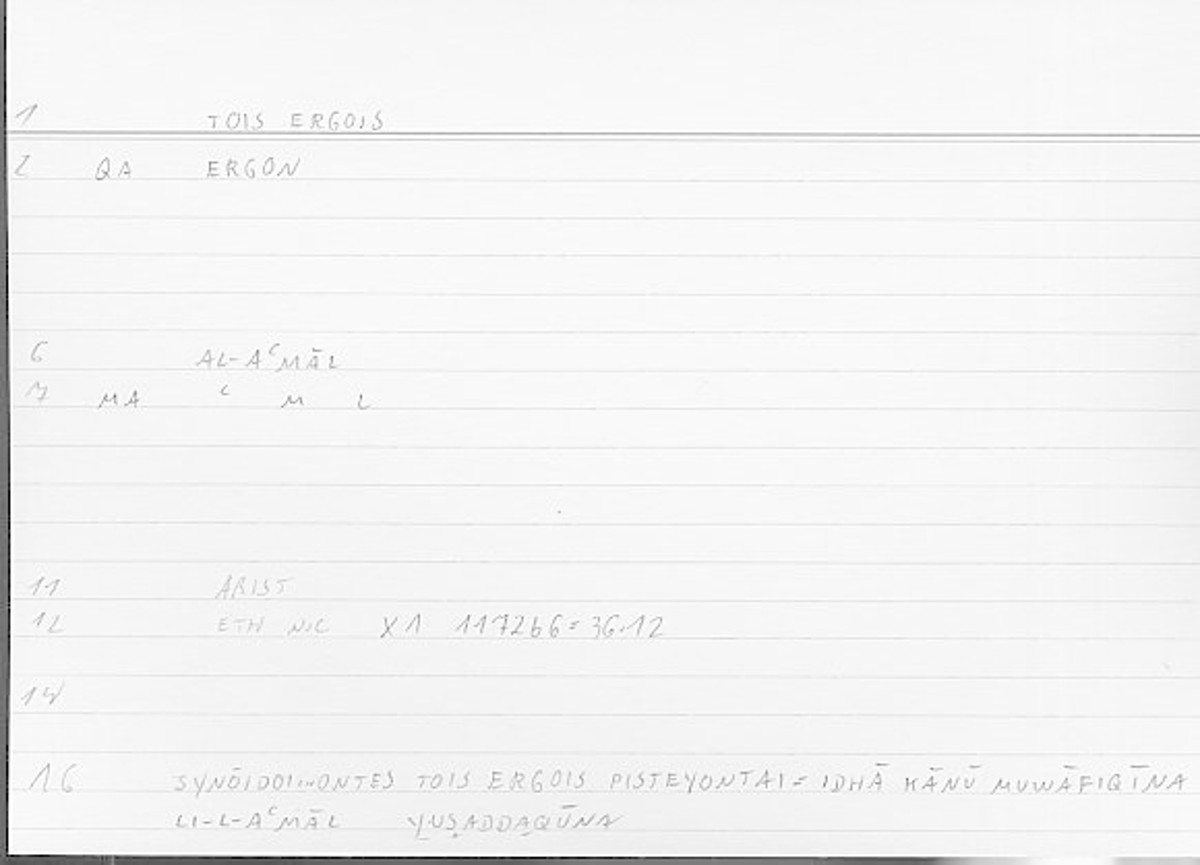 1 TOIS ERGOIS
2 QA ERGON
6 AL-AʿMĀL
7 MA ʿ M L
11 ARIST
12 ETH NIC X1 1172b6 = 36.12
14
16 SYNŌIDOI...ONTES TOIS ERGOIS PISTEYONTAI = IDHĀ KĀNŪ MUWĀFIQĪNA
LI-L-AʿMĀL YUṢADDAQŪNA